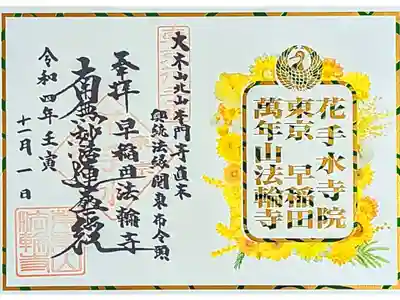 花手水寺院
東京 早稲田
萬年山法輪寺
大本山北山本門寺直末
興統法縁関東布令頭
奉拝 早稲田法輪寺
南無妙法蓮華経
令和四年壬寅
十一月一日